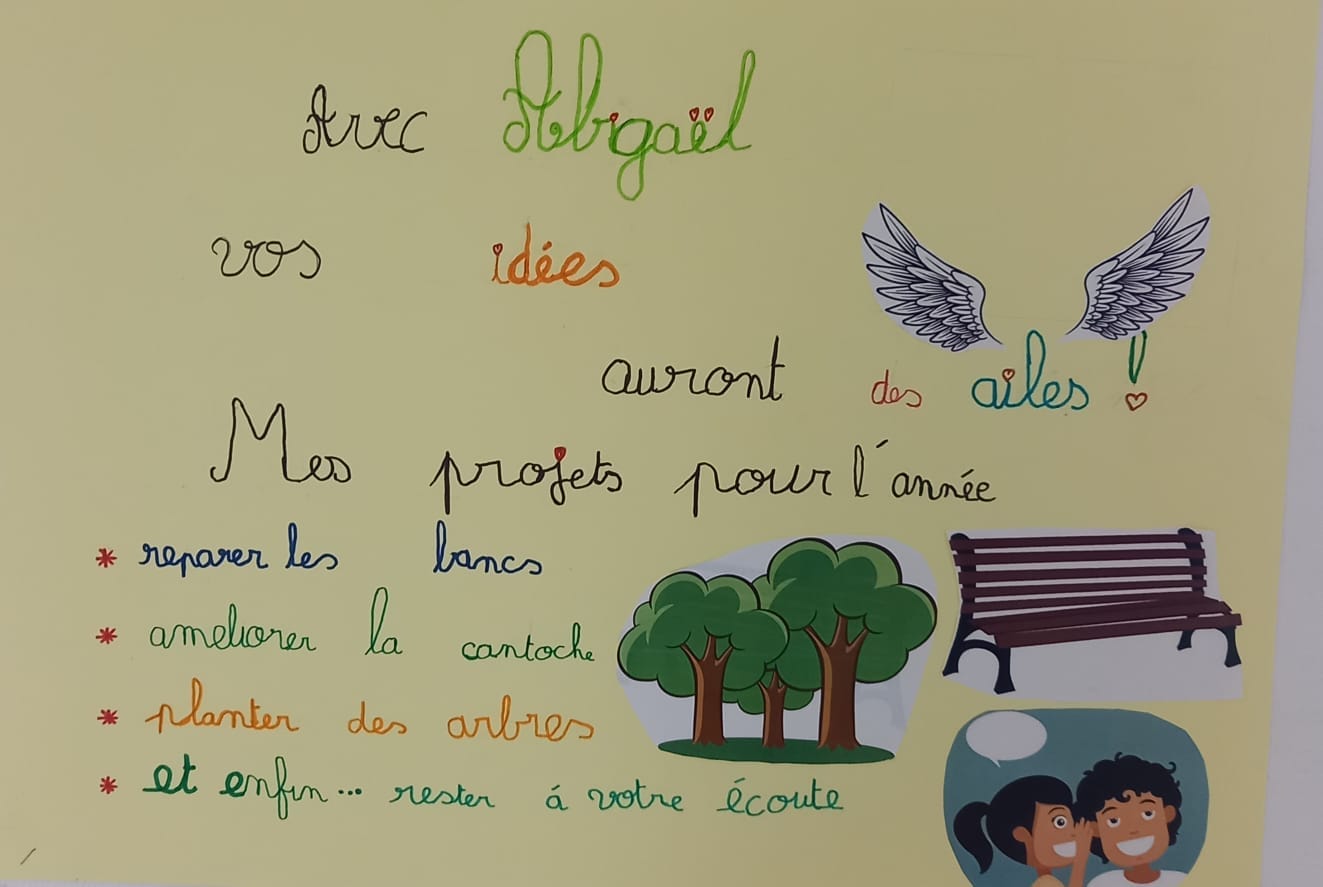 Avec Abigaël
vos idées
auront des ailes !
Mes projets pour l'année
* reparer les bancs
* ameliorer la cantoche
* planter des arbres
* et enfin... rester á votre écoute